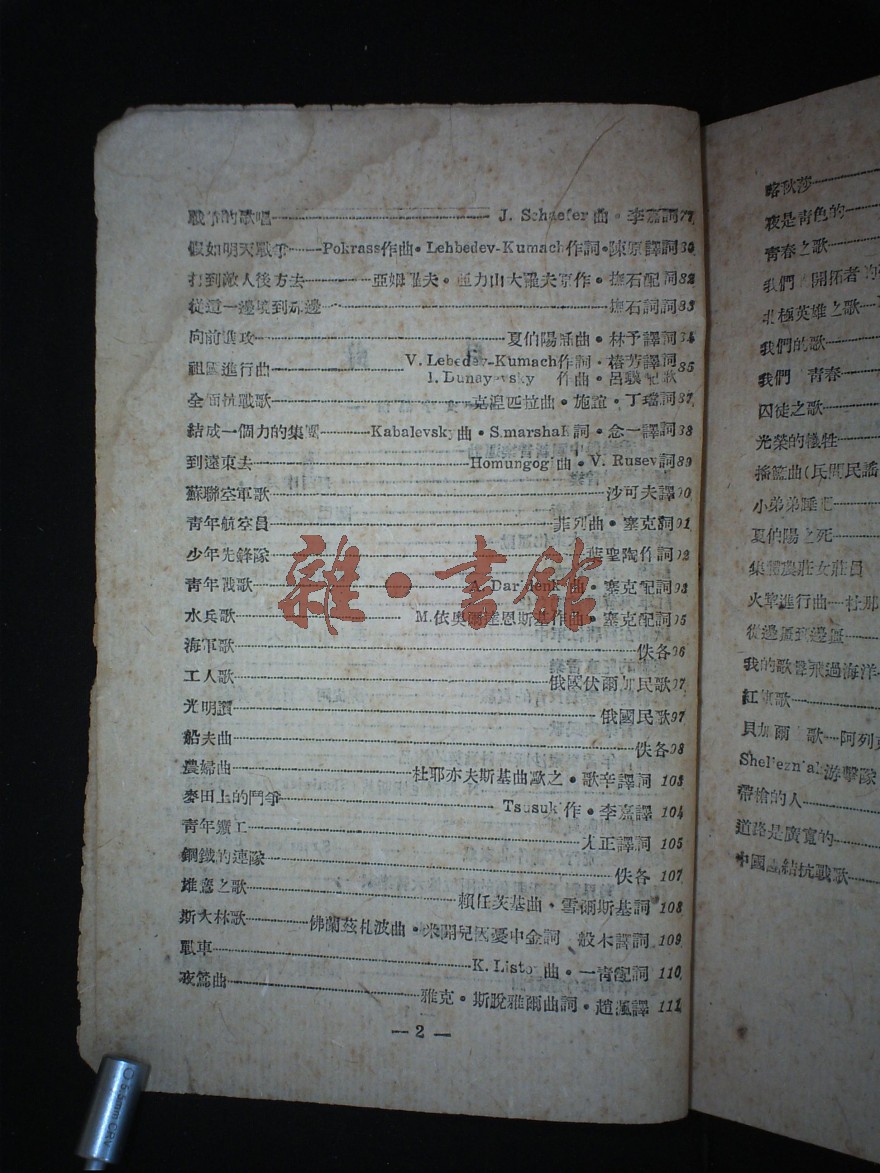 戰爭的歌唱 J. Schaefer 曲·李嘉詞 77
假如明天戰爭 Pokrass作曲·Lehbedev-Kumach作詞·陳原譯詞80
打到敵人後方去 亞姆羅夫·亞力山大羅夫原作·撫石配詞82
從這一邊境到那邊 撫石詞詞83
向前進攻 夏伯陽插曲·林予譯詞
祖國進行曲 V. Lebedev-Kumach作詞·椿芳譯詞 85
I. Dunayevsky 作曲·呂驥配歌
全面抗戰歌 克涅匹拉曲·施誼·丁璫詞87
結成一個力的集團 Kabalevsky曲·S.marshak詞·念一譯詞88
到遠東去 Homungog 曲·V. Rusev詞89
蘇聯空軍歌 沙可夫譯90
青年航空員 菲列曲·塞克詞91
少年先鋒隊 葉聖陶作詞92
青年戰歌 A. 曲·塞克配詞93
水兵歌 M.依奧 達恩斯基作曲·塞克配詞95
海軍歌 佚名96
工人歌 俄國伏爾加民歌97
光明讚 俄國民歌97
船夫曲 佚名98
農婦曲 杜耶亦夫斯基曲歌之·歌辛譯詞 103
麥田上的鬥爭 Tsusuki作·李嘉譯 104
青年鑛工 尢正譯詞 105
鋼鐵的連隊 佚名 107
之歌 賴任茨基曲·雪爾斯基詞 108
斯大林歌 佛蘭茲札波曲· 中金詞 般木譯詞 109
戰車 K. Listov曲·一青配詞 110
夜鶯曲 雅克·斯脫雅爾曲詞·趙渢譯 111
— 2 —
喀秋莎
夜是青色的
青春之歌
我們 開拓者的
北極英雄之歌
我們的歌
我們 青春
囚徒之歌
光榮的犧牲
搖籃曲(民間民謠
小弟弟睡吧
夏伯陽之死
集體農莊女莊員
火車進行曲—杜那
從邊疆到邊疆
我的歌聲飛過海洋
紅旗歌
貝加爾 歌—阿列克
Shelezniak游擊隊
帶槍的人
道路是廣寬的
中國 結抗戰歌
雜·書館
5.5mm CRV